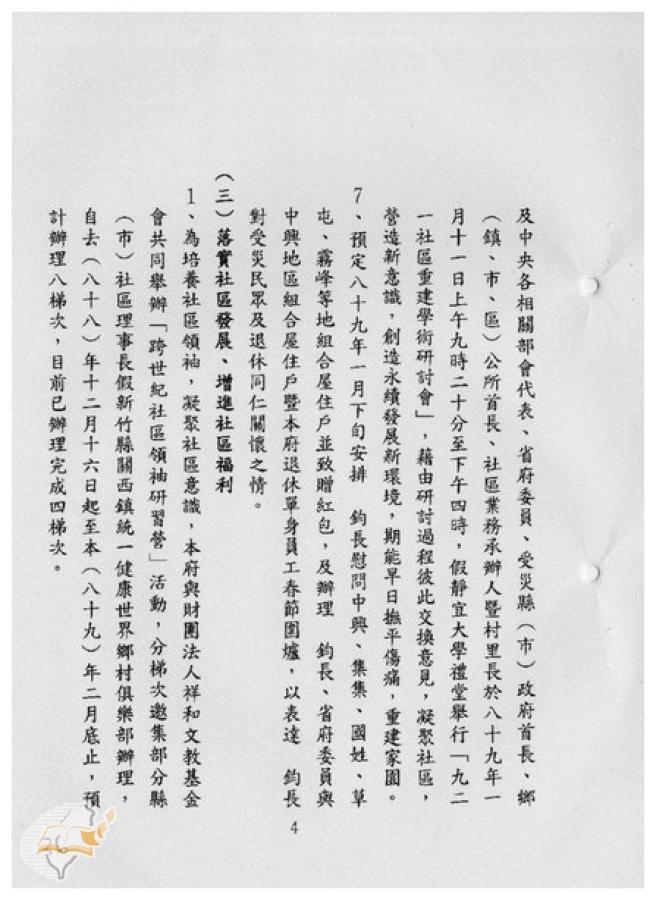 及中央各相關部會代表、省府委員、受災縣（市）政府首長、鄉
（鎮、市、區）公所首長、社區業務承辦人暨村里長於八十九年一
月十一日上午九時二十分至下午四時，假靜宜大學禮堂舉行「九二
一社區重建學術研討會」，藉由研討過程彼此交換意見，凝聚社區，
營造新意識，創造永續發展新環境，期能早日撫平傷痛，重建家園。
7、預定八十九年一月下旬安排　鈞長慰問中興、集集、國姓、草
屯、霧峰等地組合屋住戶並致贈紅包，及辦理　鈞長、省府委員與
中興地區組合屋住戶暨本府退休單身員工春節圍爐，以表達　鈞長
對受災民眾及退休同仁關懷之情。
（三）落實社區發展、增進社區福利
1、為培養社區領袖，凝聚社區意識，本府與財團法人祥和文教基金
會共同舉辦「跨世紀社區領袖研習營」活動，分梯次邀集部分縣
（市）社區理事長假新竹縣關西鎮統一健康世界鄉村俱樂部辦理，
自去（八十八）年十二月十六日起至本（八十九）年二月底止，預
計辦理八梯次，目前已辦理完成四梯次。
4